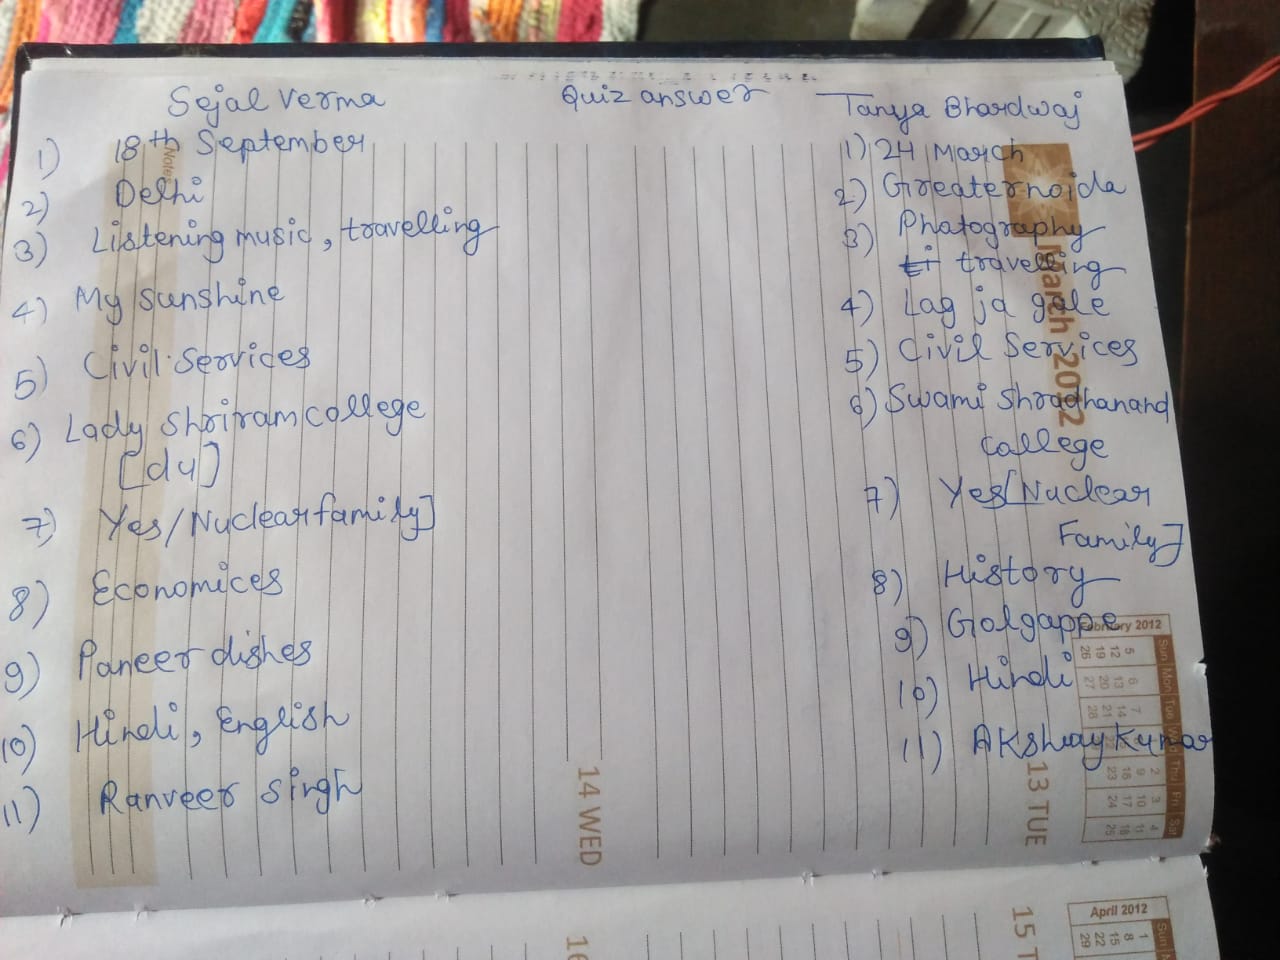 Sejal Verma
Quiz answer
Tanya Bhardwaj
1) 18th September
2) Delhi
3) Listening music, travelling
4) My sunshine
5) Civil Services
6) Lady Shriram college
[du]
7) Yes/Nuclear family]
8) Economices
9) Paneer dishes
10) Hindi, English
11) Ranveer singh
1) 24 March
2) Greater noida
3) Photography
travelling
4) Lag ja gale
5) Civil Services
6) Swami Shradhanand
college
7) Yes[Nuclear
Family]
8) History
9) Golgappe
10) Hindi
11) Akshay Kumar
Notes
March 2012
14 WED
13 TUE
February 2012
Sun 5 12 19 26
Mon 6 13 20 27
Tue 7 14 21 28
Thu 2 9 16 23
Fri 3 10 17 24
Sat 4 11 18 25
16
15 T
April 2012
Sun 1 8 15 22 29